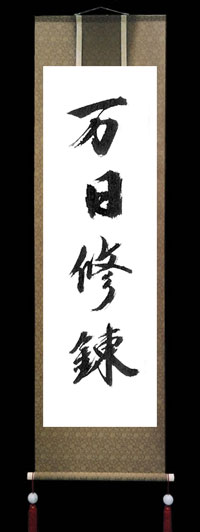 万日修錬